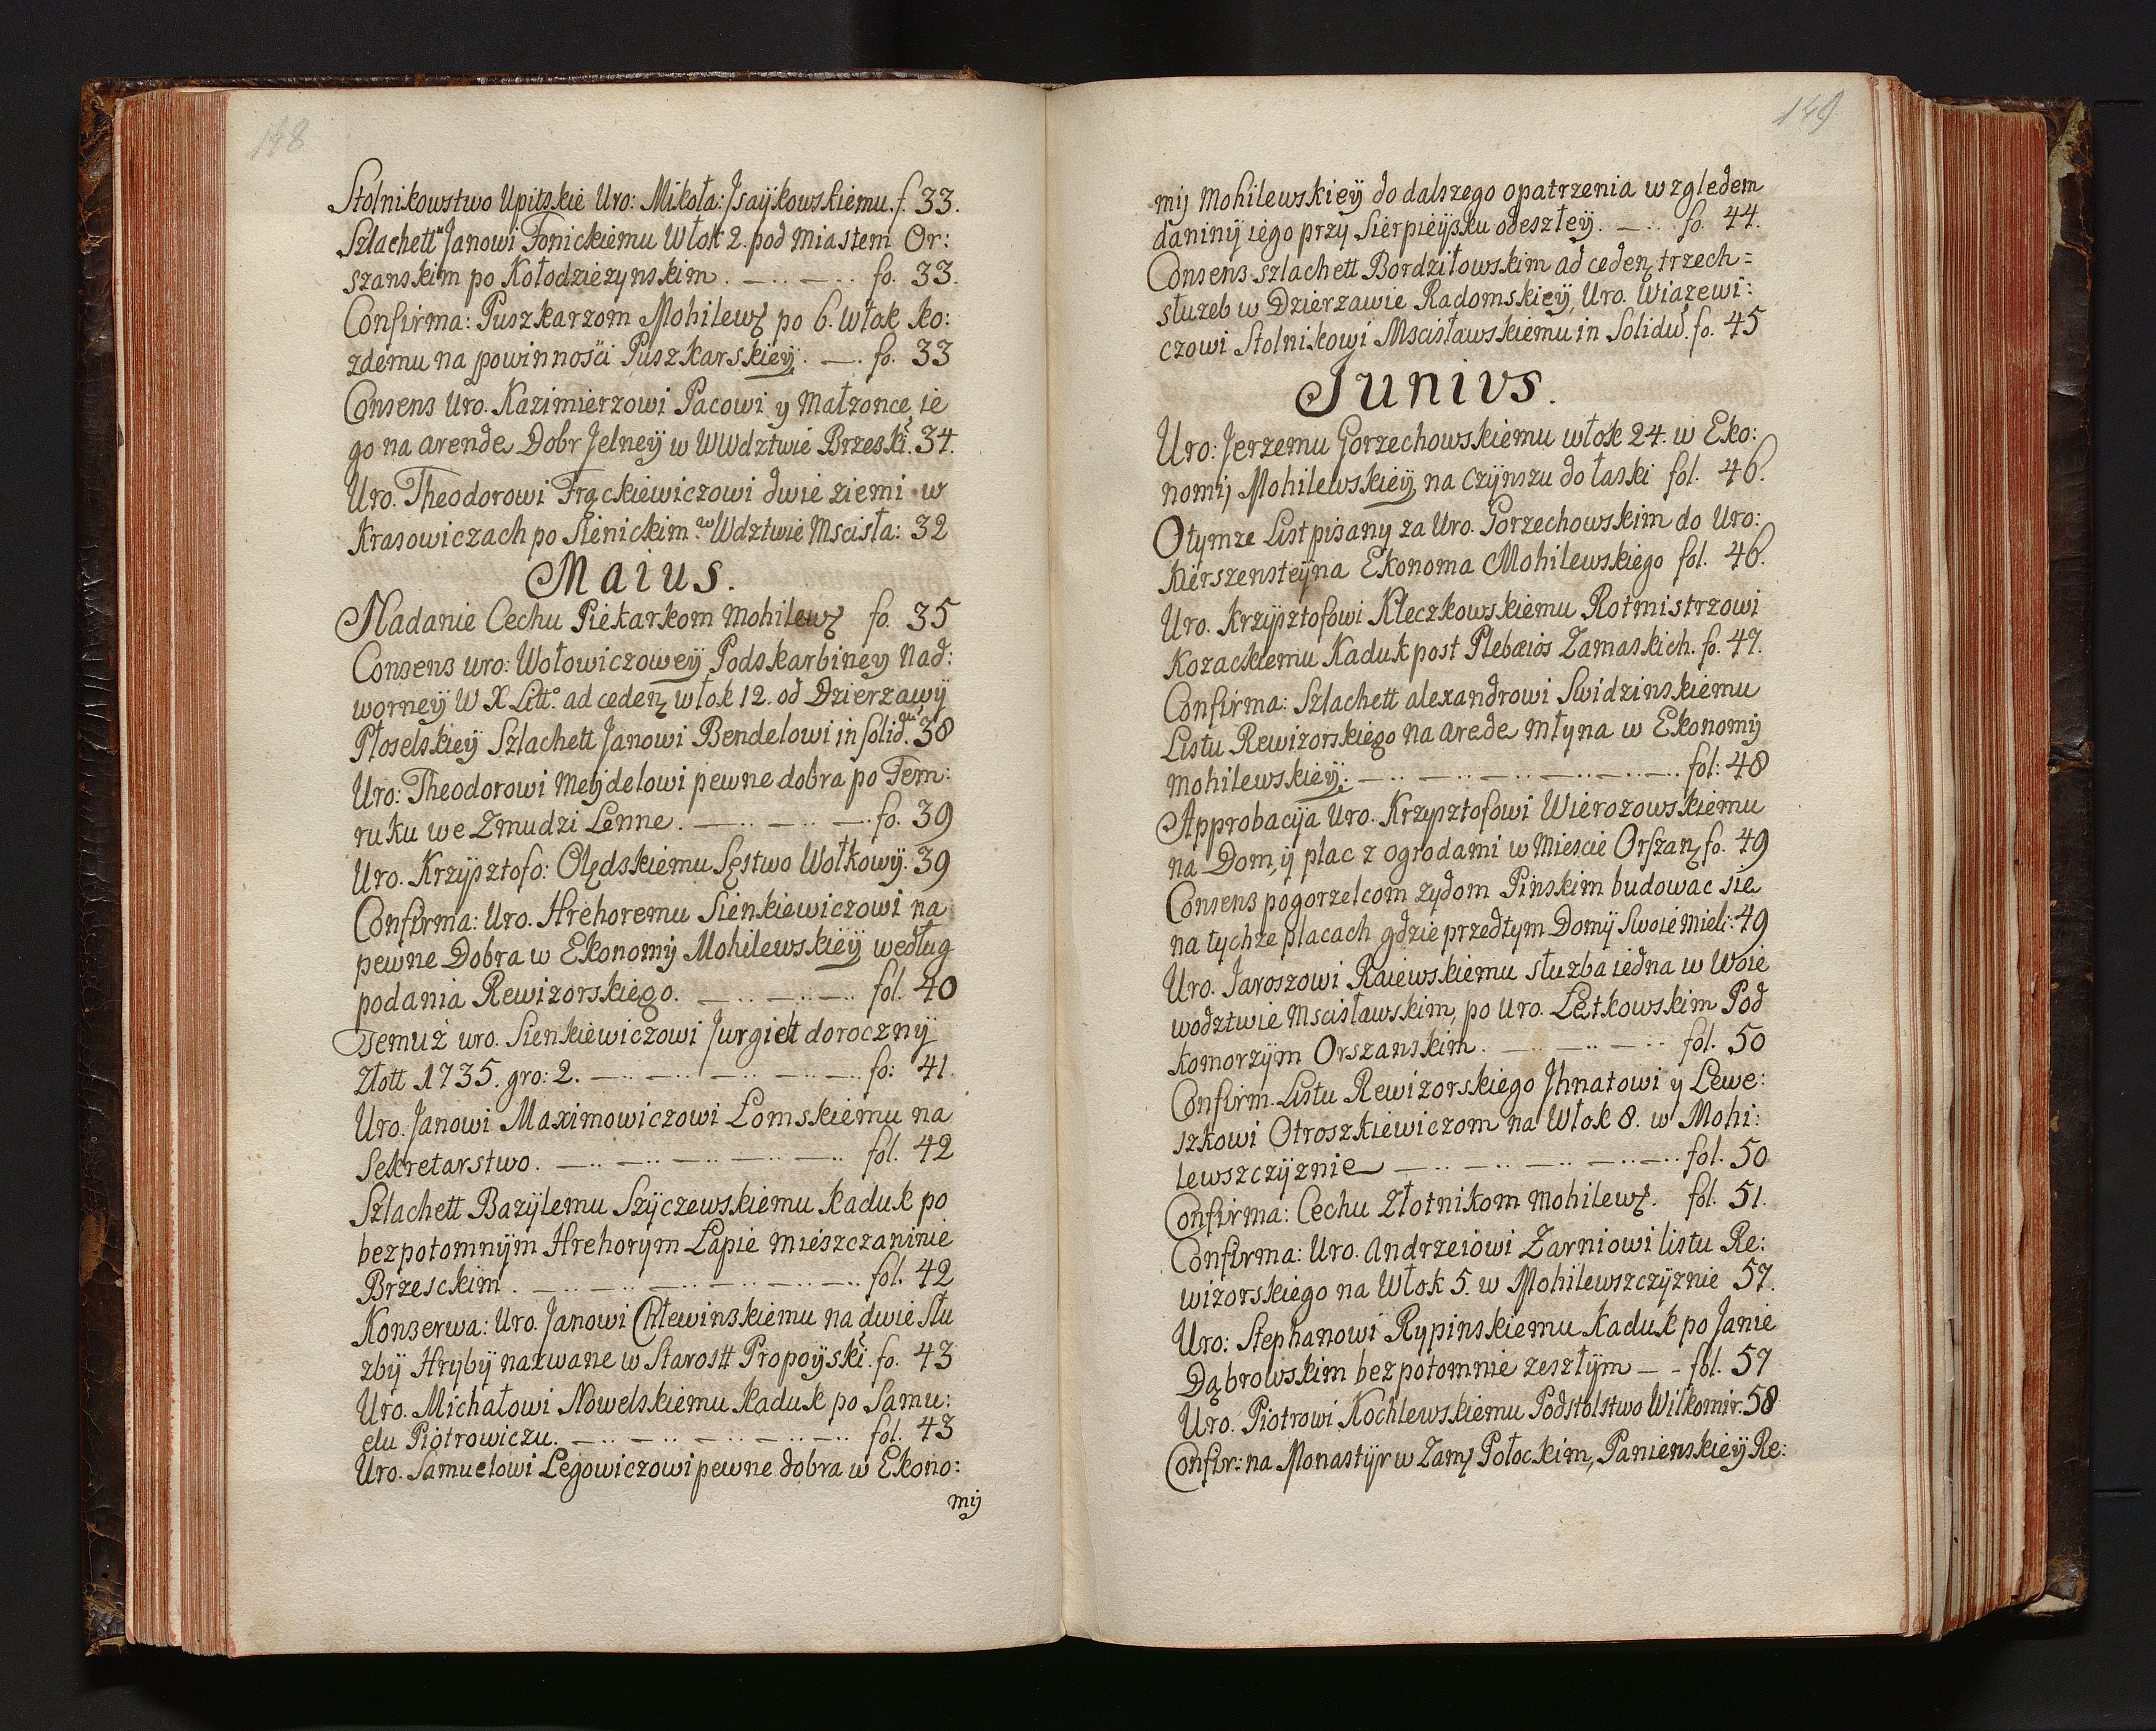 148
Stolnikowstwo Upitskie Uro: Mikoła: Jsaÿkowskiemu. f. 33.
Szlachett Janowi Fonickiemu Włok 2. pod Miastem Or:
szanskim po Kołodzieżynskim. fo. 33.
Confirma: Puszkarzom Mohilew po 6. włok ko:
żdemu na powinnosci Puszkarskieÿ. fo. 33
Consens Uro. Kazimierzowi Pacowi y Małżonce ie
go na arende Dobr Jelneÿ w WWdztwie Brzeski. 34.
Uro. Theodorowi Frąckiewiczowi dwie ziemi w
Krasowiczach po Sienickim w Wdztwie Mscisła: 32
Maius.
Nadanie Cechu Piekarkom Mohilew fo. 35
Consens uro: Wołowiczoweÿ Podskarbineÿ Nad:
worneÿ W X Litt° ad ceden włok 12. od Dzierżawÿ
Płoselskieÿ Szlachett Janowi Bendelowi in solid. 38
Uro: Theodorowi Meÿdelowi pewne dobra po Tem:
ruku we Zmudzi Lenne. fo. 39
Uro. Krzÿsztofo: Olędskiemu Sęstwo Wołkowÿ. 39
Confirma: Uro. Hrehoremu Sienkiewiczowi na
pewne Dobra w Ekonomÿ Mohilewskieÿ według
podania Rewizorskiego. fol. 40
Temuż uro. Sienkiewiczowi Jurgielt dorocznÿ
Złott 1735. gro: 2. fo: 41.
Uro. Janowi Maximowiczowi Łomskiemu na
Sekretarstwo. fol. 42
Szlachett Bazÿlemu Szÿczewskiemu Kaduk po
bezpotomnÿm Hrehorym Łapie mieszczaninie
Brzesckim. fol. 42
Konserwa: Uro. Janowi Chlewinskiemu na dwie Słu
zbÿ Hrybÿ nazwane w Starostt Propoÿski. fo. 43
Uro. Michałowi Nowelskiemu Kaduk po Samu:
elu Piotrowiczu. fol. 43
Uro. Samuelowi Legowiczowi pewne dobra w Ekono:
mÿ
149
mÿ Mohilewskieÿ do dalszego opatrzenia względem
daninÿ iego przy Sierpieÿsku odeszłeÿ. fo. 44.
Consens szlachett Bordziłowskim ad ceden trzech=
służeb w Dzierzawie Radomskieÿ, Uro. Wiążewi:
czowi Stolnikowi Mscisławskiemu in Solidu. fo. 45
Junius.
Uro: Jerzemu Gorzechowskiemu włok 24. w Eko:
nomÿ Mohilewskieÿ na Czÿnszu do łaski fol. 46.
Otymze List pisany za Uro. Gorzechowskim do Uro:
Kierszensteÿna Ekonoma Mohilewskiego fol. 46.
Uro. Krzÿsztofowi Kleczkowskiemu Rotmistrzowi
Kozackiemu Kaduk post Plebæios Zamaskich. fo. 47.
Confirma: Szlachett alexandrowi Swidzinskiemu
Listu Rewizorskiego na arede Młyna w Ekonomÿ
Mohilewskieÿ. fol: 48
Approbacÿa Uro. Krzysztofowi Wierozowskiemu
na Dom, ÿ plac z ogrodami w Miescie Orszan fo. 49
Consens pogorzelcom żydom Pinskim budowac się
na tychze placach gdzie przedtym Domÿ Swoie mieli: 49
Uro. Jaroszowi Raiewskiemu służba iedna w Woie
wodztwie Mscisławskim, po Uro. Letkowskim Pod
komorzÿm Orszanskim. fol. 50
Confirm. Listu Rewizorskiego Jhnatowi y Lewe:
szkowi Otroszkiewiczom na Włok 8. w Mohi:
lewszczÿznie fol. 50
Confirma: Cechu Złotnikom Mohilew. fol. 51.
Confirma: Uro. Andrzeiowi Żarniowi listu Re:
wizorskiego na Włok 5. w Mohilewszczÿznie 57.
Uro: Stephanowi Rypinskiemu Kaduk po Janie
Dąbrowskim bezpotomnie zeszłÿm fol. 57
Uro. Piotrowi Kochlewskiemu Podstolstwo Wilkomir. 58
Confir: na Monastÿr w Zam Połockim, Panienskieÿ Re: